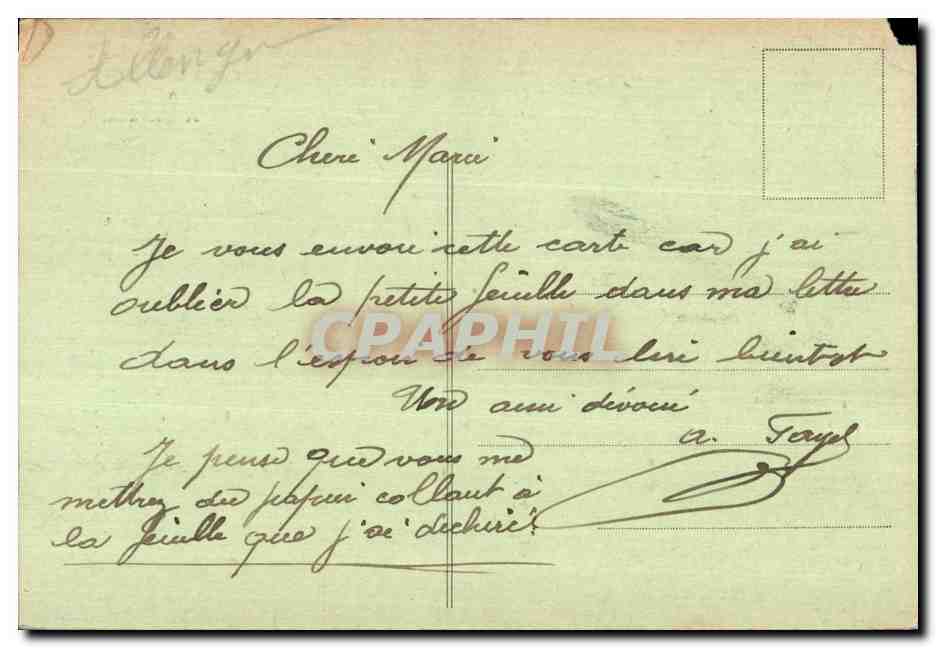 Cheri Marie
Je vous envoi cette carte car j'ai
oublier la petite feuille dans ma lettre
CPAPHIL
dans l'espoir de vous lire bientot
Un ami dévoué
a. Fayel
Je pense que vous me
mettrez du papier collant à
la feuille que j'ai déchiré!